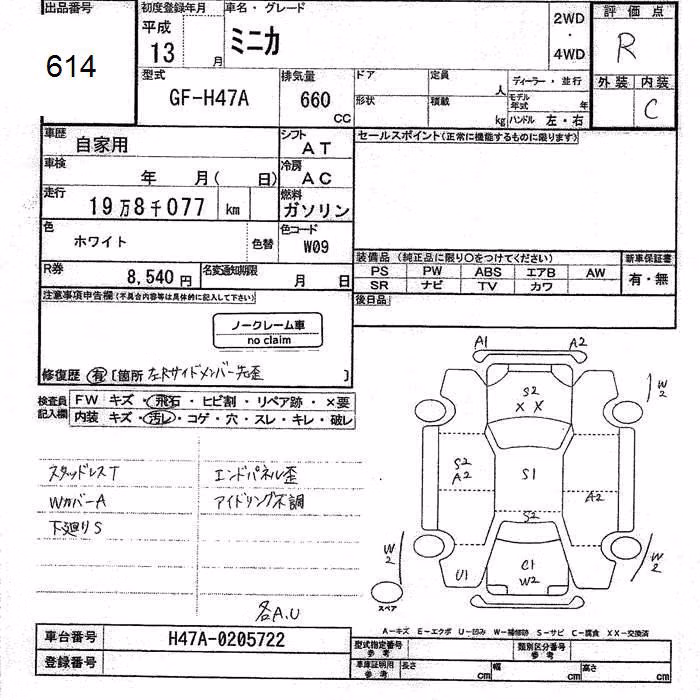 出品番号
614
初度登録年月
平成
13 月
車名・グレード
ミニカ
2WD
・
4WD
評価点
R
外装 内装
C
型式
GF-H47A
排気量
660
CC
ドア 定員 人
形状 積載 kg
ディーラー・並行
モデル年式 年
ハンドル 左・右
車歴
自家用
シフト
AT
セールスポイント(正常に機能するものに限ります)
車検
年 月( 日)
冷房
AC
走行
19万8千077 km
燃料
ガソリン
色
ホワイト
色替
色コード
W09
装備品 (純正品に限り○をつけてください)
PS PW ABS エアB AW
SR ナビ TV カワ
新車保証書
有・無
R券
8,540 円
名変通知期限
月 日
後日品
注意事項申告欄(不具合内容等は具体的に記入して下さい)
ノークレーム車
no claim
修復歴 有 [箇所 左Rサイドメンバー先歪 ]
検査員記入欄
FW キズ・飛石・ヒビ割・リペア跡・×要
内装 キズ・汚レ・コゲ・穴・スレ・キレ・破レ
スタッドレスT
WカバーA
下廻りS
エンドパネル歪
アイドリング不調
各A.U
A1 A2
S2
X X
W2
S2
A2
S1
A2
S2
W2
U1
C1
W2
W2
スペア
A-キズ E-エクボ U-凹み W-補修跡 S-サビ C-腐食 XX-交換済
車台番号
H47A-0205722
登録番号
型式指定番号
参考
類別区分番号
参考
車庫証明用
参考
長さ cm
幅 cm
高さ cm